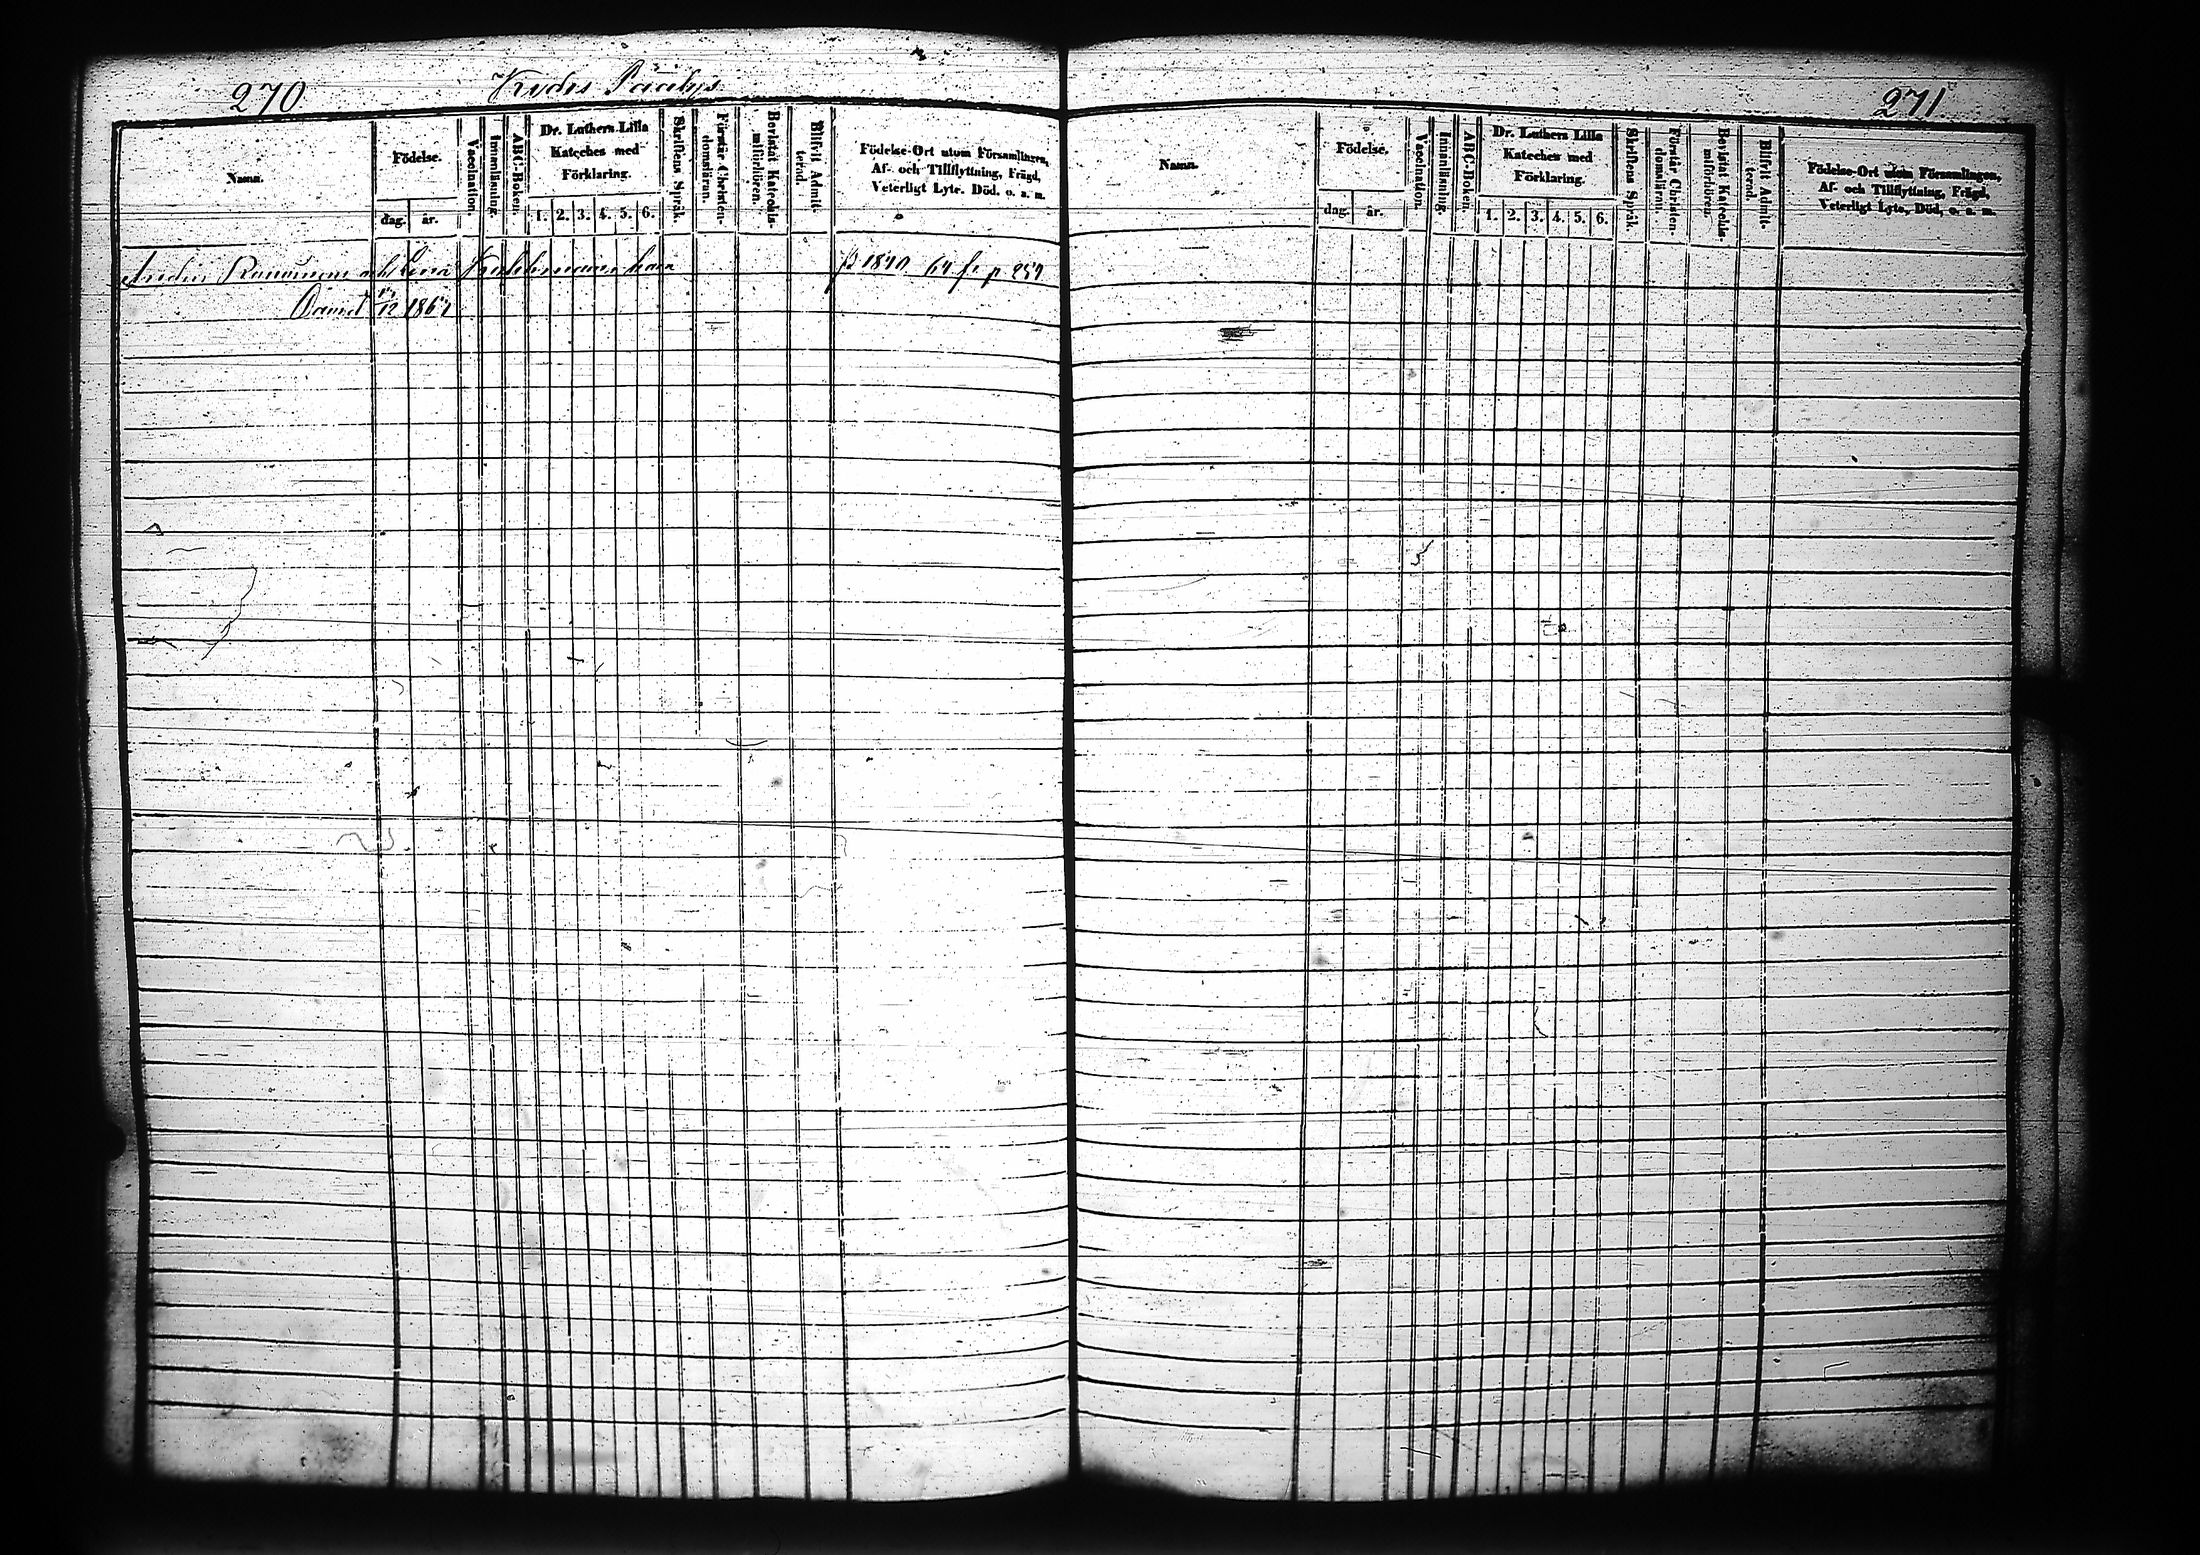 270
Namn.
Födelse.
dag. år.
Vaccination.
Innanläsning.
ABC-Boken.
Dr. Luthers Lilla
Kateches med
Förklaring.
1. 2. 3. 4. 5. 6.
Skriftens Språk.
Förstår Christen-
domsläran.
Bevistat Katechis-
miförhören.
Blifvit Admit-
terad.
Födelse-Ort utom Församlingen,
Af- och Tillflyttning, Frägd,
Veterligt Lyte, Död, o. a. m.
1840 64 fr p 257
David 12 186
271
Namn.
Födelse.
dag. år.
Vaccination.
Innanläsning.
ABC-Boken.
Dr. Luthers Lilla
Kateches med
Förklaring.
1. 2. 3. 4. 5. 6.
Skriftens Språk.
Förstår Christen-
domsläran.
Bevistat Katechis-
miförhören.
Blifvit Admit-
terad.
Födelse-Ort utom Församlingen,
Af- och Tillflyttning, Frägd,
Veterligt Lyte, Död, o. a. m.